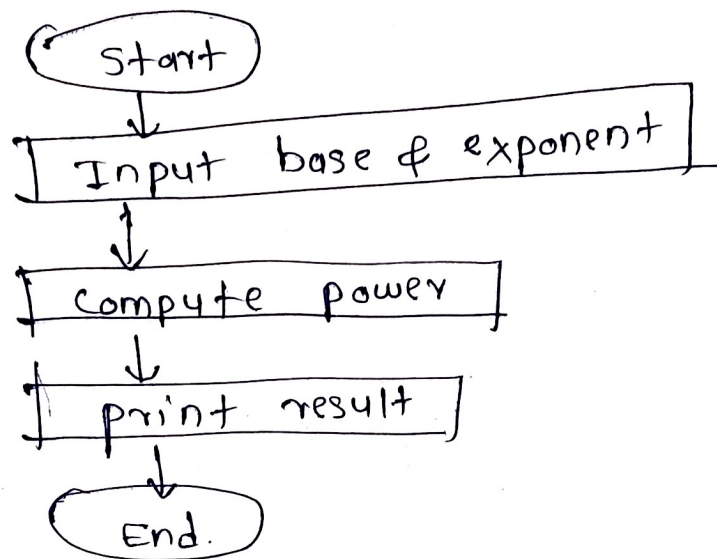 Start
Input base & exponent
Compute power
print result
End.